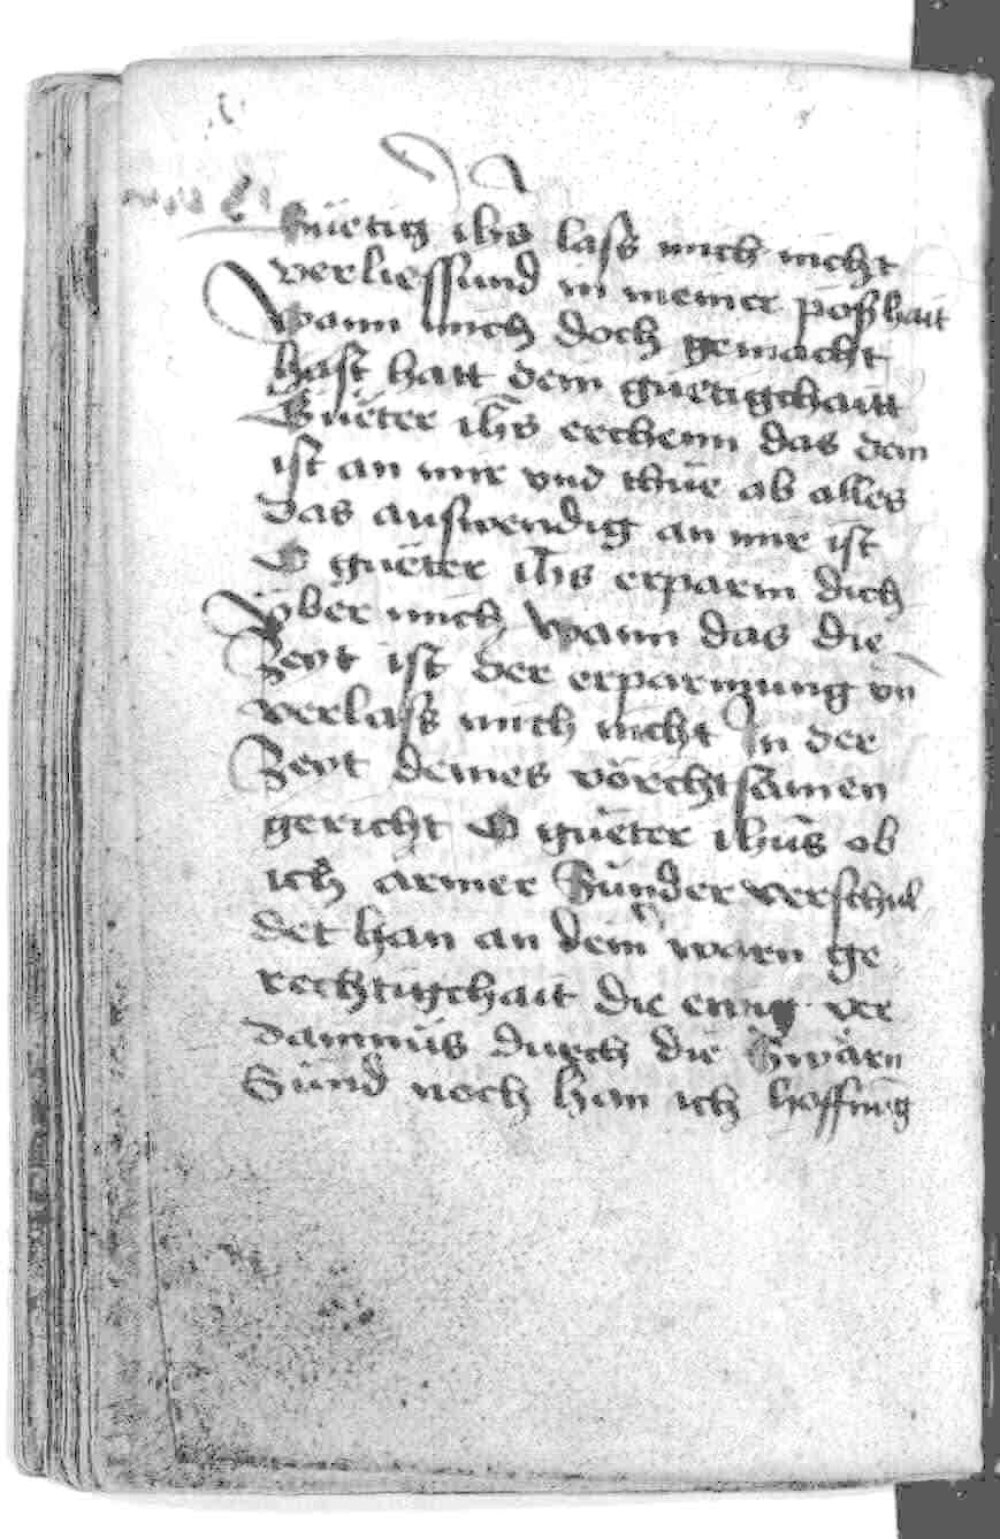 Güetig ihs lass mich nicht
verliessund in meiner poßhait
Wann mich doch gemacht
hast hatt dein güetigchaitt
Güeter ihs erchenn das dein
ist an mir vnd thüe ab alles
das auswendig an mir ist
O güeter ihs erparm dich
Vber mich wann das die
Zeyt ist der erparmung vn
verlass mich nicht In der
Zeyt deines vörchtsamen
gericht O güeter ihus ob
ich armer Sünder verschul
det han an dein warn ge
rechtigchait die ewig ver
damnüs durch die Swärn
Sünd noch han ich hoffnūg